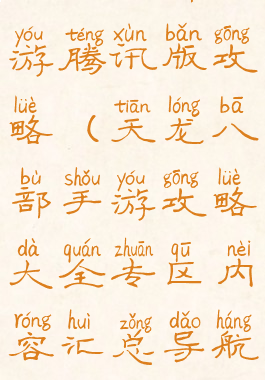 yóu téng xùn bǎn gōng
游腾讯版攻
lüè tiān lóng bā
略（天龙八
bù shǒu yóu gōng lüè
部手游攻略
dà quán zhuān qū nèi
大全专区内
róng huì zǒng dǎo háng
容汇总导航